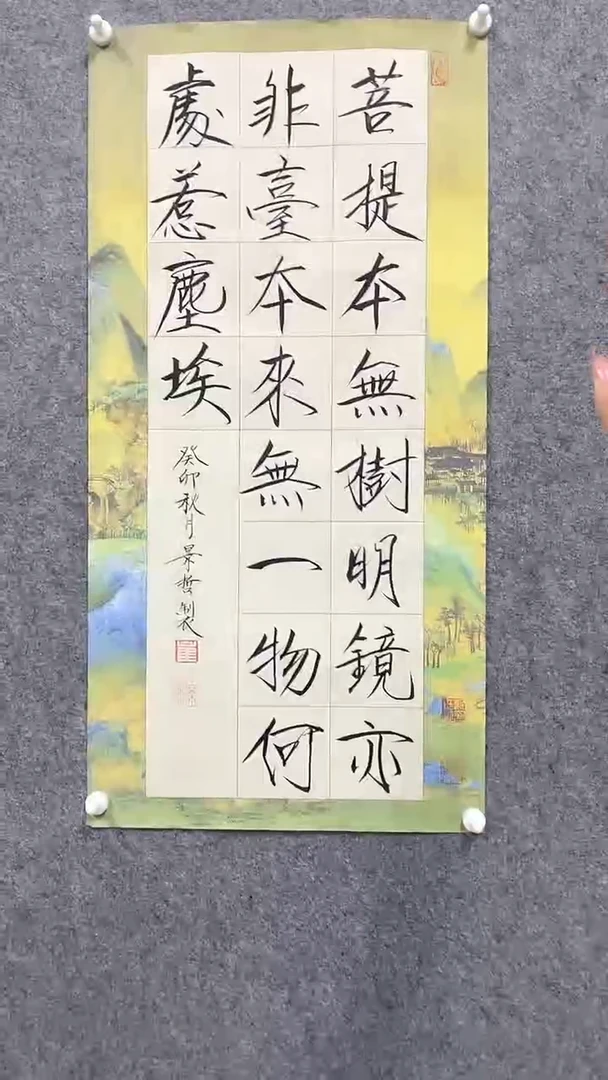 菩提本無樹明鏡亦
非臺本來無一物何
處惹塵埃
癸卯秋月景哲製